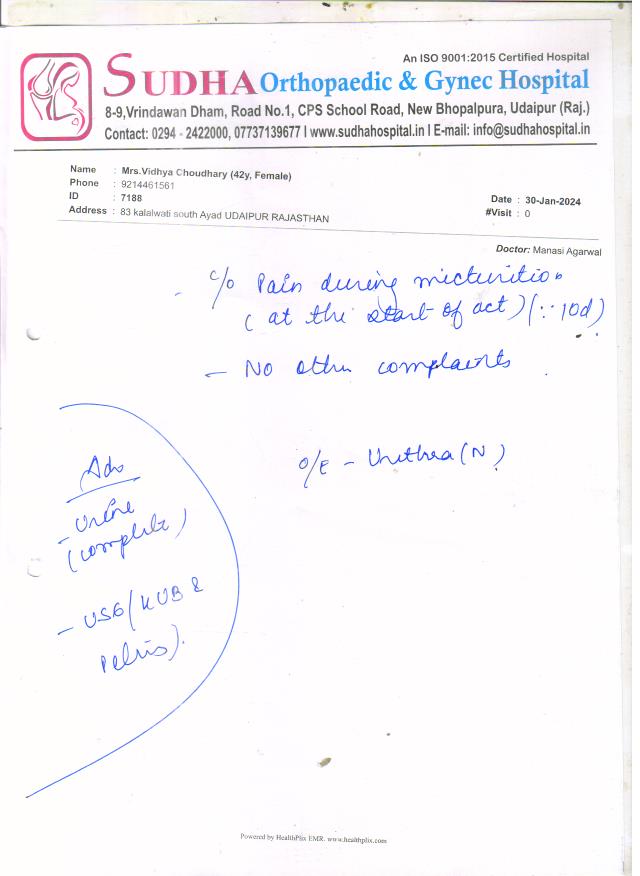 An ISO 9001:2015 Certified Hospital
SUDHA Orthopaedic & Gynec Hospital
8-9,Vrindawan Dham, Road No.1, CPS School Road, New Bhopalpura, Udaipur (Raj.)
Contact: 0294 - 2422000, 07737139677 I www.sudhahospital.in I E-mail: info@sudhahospital.in
Name : Mrs.Vidhya Choudhary (42y, Female)
Phone : 9214461561
ID : 7188
Address : 83 kalalwati south Ayad UDAIPUR RAJASTHAN
Date : 30-Jan-2024
#Visit : 0
Doctor: Manasi Agarwal
- c/o Pain during micturition
(at the start of act) (∵ 10d)
- No other complaints
O/E - Urethra (N)
Adv
- Urine
(complete)
- USG (KUB &
Pelvis).
Powered by HealthPlix EMR. www.healthplix.com